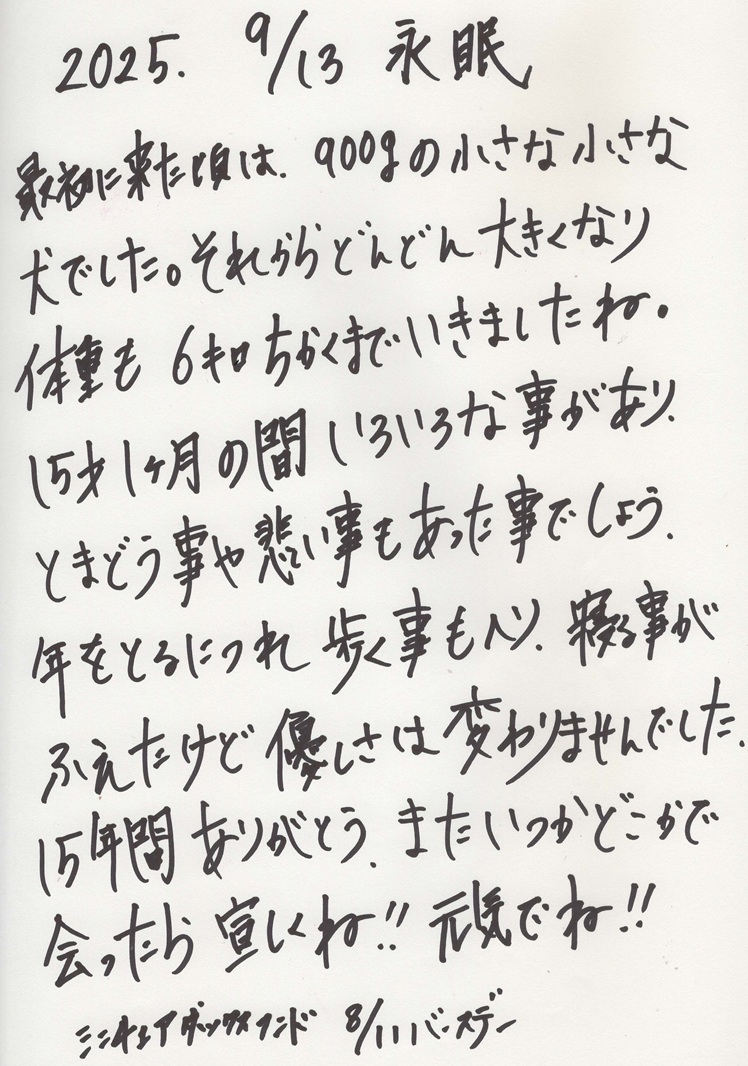 2025. 9/13 永眠
最初に来た頃は、900gの小さな小さな
犬でした。それからどんどん大きくなり
体重も6キロちかくまでいきましたね。
15才1ヶ月の間いろいろな事があり、
とまどう事や悲しい事もあった事でしょう、
年をとるにつれ歩く事もへり、寝る事が
ふえたけど優しさは変わりませんでした、
15年間ありがとう、またいつかどこかで
会ったら宜しくね!! 元気でね!!
ミニチュアダックスフンド 8/11バースデー